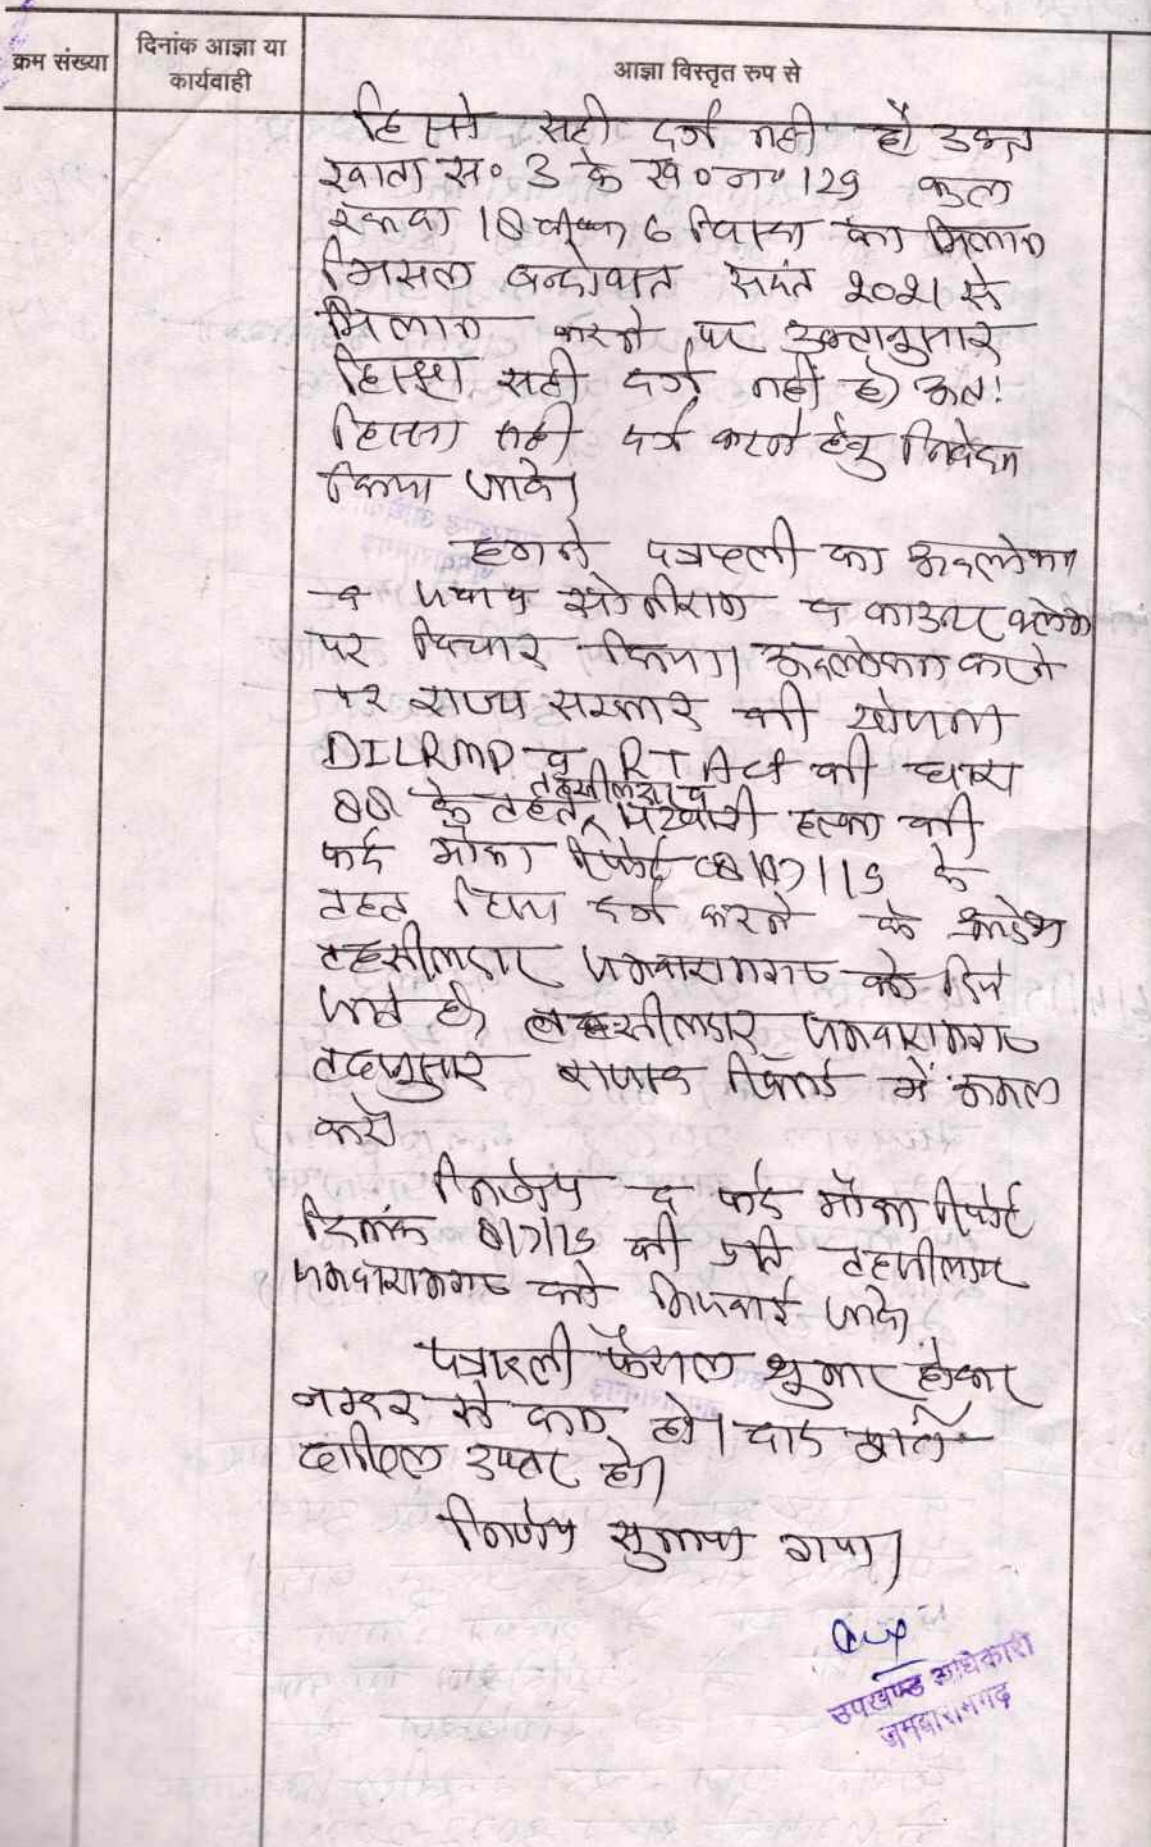 क्रम संख्या
दिनांक आज्ञा या
कार्यवाही
आज्ञा विस्तृत रुप से
हिस्से सही दर्ज नही है उक्त
खाता स० 3 के ख० न० 129 कुल
रकबा 18 बीघा 6 बिस्वा का मिलान
मिसल बन्दोबस्त सवंत 2021 से
मिलान करने पर उक्तानुसार
हिस्सा सही दर्ज नहीं है अत:
हिस्सा सही दर्ज करने हेतु निवेदन
किया जावे।
हमने पत्रावली का अवलोकन
व जवाब व काउन्टर क्लेम
पर विचार किया। अवलोकन करने
पर राज्य सरकार की योजना
DILRMP व RT Act की धारा
88 के तहत तहसीलदार व पटवारी हल्का की
फर्द मौका रिपोर्ट 08/07/15 के
तहत हिस्सा दर्ज करने के आदेश
तहसीलदार जमवारामगढ को दिये
जाते है। तहसीलदार जमवारामगढ
तदनुसार राजस्व रिकॉर्ड में अमल
करे।
निर्णय व फर्द मौका रिपोर्ट
दिनांक 8/7/15 की प्रति तहसीलदार
जमवारामगढ को भिजवाई जावे।
पत्रावली फैसल शुमार होकर
नम्बर से कम हो। बाद
दाखिल दफ्तर हो।
निर्णय सुनाया गया।
उपखण्ड अधिकारी
जमवारामगढ़